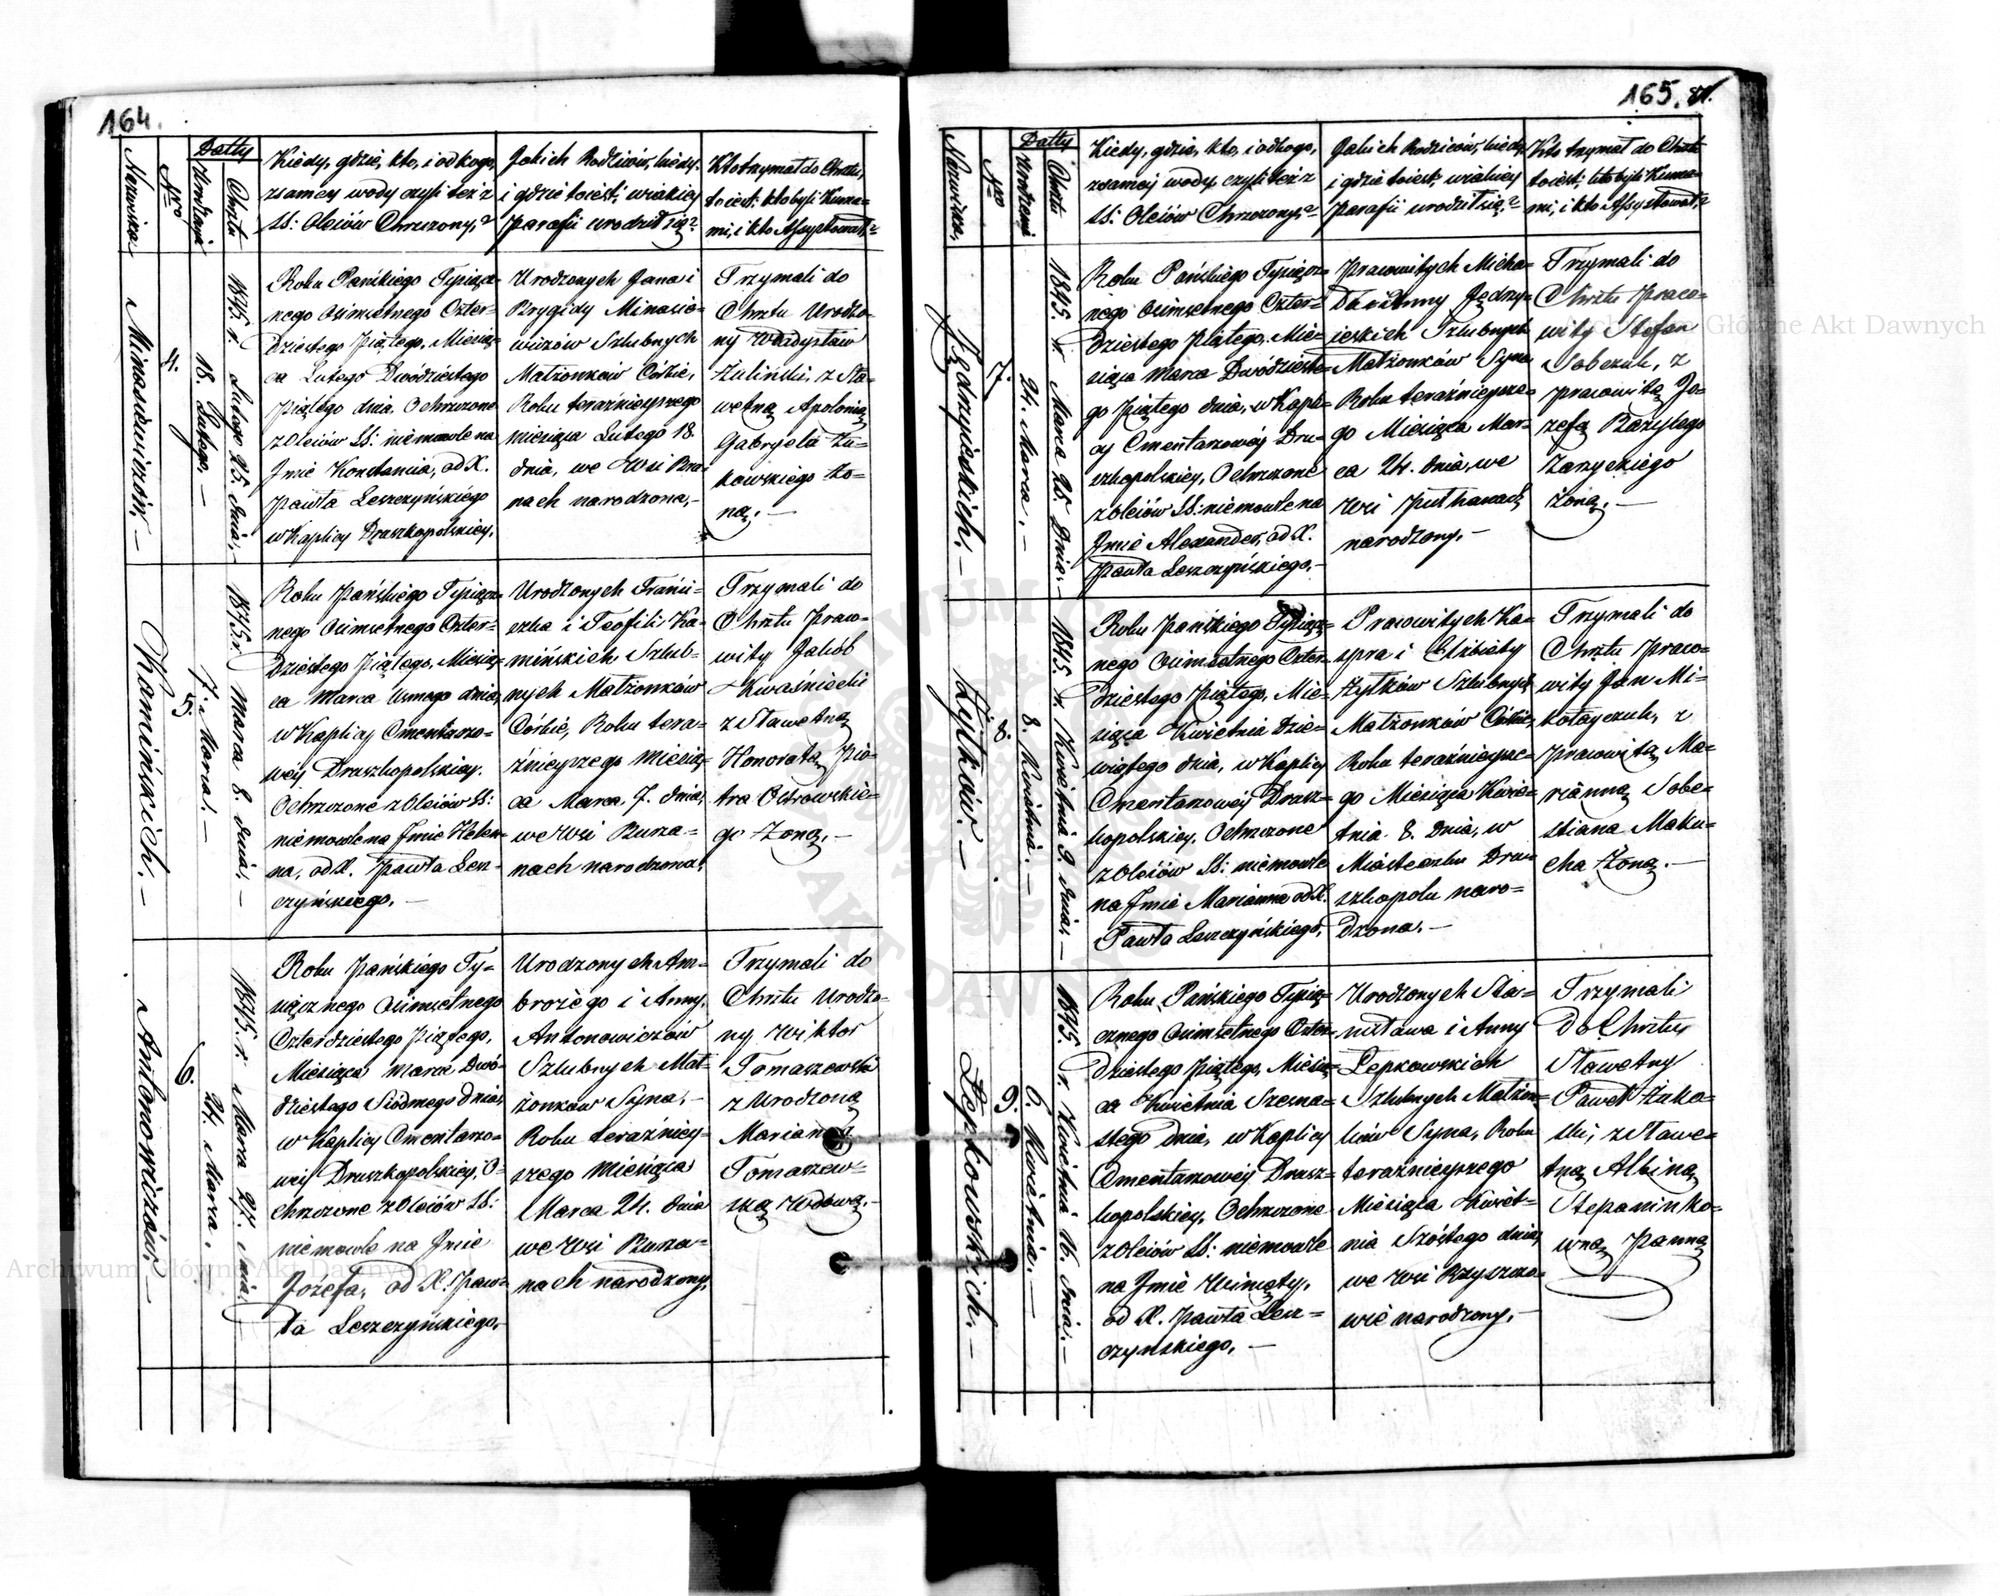 164.
Nazwiska
Nro
Datty
Urodzenia
Chrztu
Kiedy, gdzie, kto, i od kogo,
z samej wody czyli też z
SS: Oleiów Chrzczony,?
Jakich Rodziców, kiedy,
i gdzie to iest: w iakiey
parafii urodził się?
Kto trzymał do Chrztu,
to iest: kto byli Kuma=
mi, i kto Assystował?
Minasiewiczów. —
4.
18. Lutego. —
1845. r. Lutego 25. dnia. —
Roku Pańskiego Tysiącz=
nego Ośmsetnego Czter=
dziestego Piątego, Miesią=
ca Lutego Dwódziestego
Piątego dnia, Ochrzczone
z Oleiów SS: niemowle na
Jmie Konstancia, od X.
Pawła Leszczyńskiego
w Kaplicy Druszkopolskiey.
Urodzonych Jana i
Brygidy Minasie=
wiczów Szlubnych
Małżonków Córkie,
Roku teraźnieyszego
miesiąca Lutego 18.
dnia, we Wsi Bra=
nach narodzona, —
Trzymali do
Chrztu Urodzo=
ny Władysław
Żuliński, z Sła=
wetną Apolonią
Gabryela Żu=
kowskiego Żo=
ną. —
Kamińskich. —
5.
7. Marca. —
1845. r. Marca 8. dnia. —
Roku Pańskiego Tysiącz=
nego Ośmsetnego Czter=
dziestego Piątego, Miesią=
ca Marca Usmego dnia,
w Kaplicy Cmentarzo=
wey Druszkopolskiey.
Ochrzczone z Oleiów SS:
niemowle na Jmie Hele=
na, od X. Pawła Lesz=
czyńskiego. —
Urodzonych Franci=
szka i Teofili Ka=
mińskich Szlub=
nych Małżonków
Córkie, Roku tera=
źnieyszego miesią=
ca Marca, 7. dnia,
we Wsi Bura=
nach narodzona,
Trzymali do
Chrztu Praco=
wity Jakób
Kwaśniecki
z Sławetną
Honoratą Pio=
tra Ostrowskie=
go Żoną. —
Antonowiczów. —
6.
24. Marca. —
1845. r. Marca 27. dnia. —
Roku Pańskiego Ty=
siącznego Ośmsetnego
Czterdziestego Piątego,
Miesiąca Marca Dwó=
dziestego Siódmego dnia,
w Kaplicy Cmentarzo=
wey Druszkopolskiey, O=
chrzczone z Oleiów SS:
niemowle na Jmie
Jozefa, od X. Paw=
ła Leszczyńskiego. —
Urodzonych Am=
brożego i Anny,
Antonowiczów
Szlubnych Mał=
żonków Syna, —
Roku teraźniey=
szego Miesiąca
Marca 24. dnia
we Wsi Bura=
nach narodzony,
Trzymali do
Chrztu Urodzo=
ny Wiktor
Tomaszewski
z Urodzoną
Marianną
Tomaszew=
ską Wdową. —
165.
Nazwiska,
Nro
Datty
Urodzenia
Chrztu
Kiedy, gdzie, kto, i od kogo,
z samej wody, czyli też z
SS: Oleiów Chrzczony,?
Jakich Rodziców, kiedy,
i gdzie to iest, w iakiey
parafii urodził się,?
Kto trzymał do Chrztu
to iest; kto byli Kuma=
mi, i kto Assystował,?
Jędrzyieskich. —
7.
24. Marca. —
1845. r. Marca 25. Dnia. —
Roku Pańskiego Tysiącz=
nego Ośmsetnego Czter=
dziestego Piątego, Mie=
siąca Marca Dwódzieste=
go Piątego dnia, w Kapli=
cy Cmentarzowéy Dru=
szkopolskiey, Ochrzczone
z Oleiów SS: niemowle na
Jmie Alexander, od X.
Pawła Leszczyńskiego. —
Pracowitych Micha=
ła i Anny Jędrzy=
ieskich Szlubnych
Małżonków Syna
Roku teraźnieysze=
go Miesiąca Mar=
ca 24. dnia, we
Wsi Pułhanach
narodzony. —
Trzymali do
Chrztu Praco=
wity Stefan
Sobczuk, z
Pracowitą Jo=
zefą Bazylego
Zaryckiego
Żoną. —
Żytków. —
8.
8. Kwietnia. —
1845. r. Kwietnia 9. dnia. —
Roku Pańskiego Tysiącz=
nego Ośmsetnego Czter=
dziestego Piątego, Mie=
siąca Kwietnia Dzie=
wiątego dnia, w Kaplicy
Cmentarzowéy Drusz=
kopolskiey, Ochrzczone
z Oleiów SS: niemowle
na Jmie Marianna od X.
Pawła Leszczyńskiego.
Pracowitych Ka=
spra i Elżbiety
Żytków Szlubnych
Małżonków Córkie,
Roku teraźnieysze=
go Miesiąca Kwie=
tnia 8. dnia, w
Miasteczku Dru=
szkopolu naro=
dzona. —
Trzymali do
Chrztu Praco=
wity Jan Mi=
kołayczuk, z
Pracowitą Ma=
rianną Sobe=
stiana Maku=
cha Żoną. —
Lepkowskich. —
9.
6. Kwietnia. —
1845. r. Kwietnia 16. dnia. —
Roku Pańskiego Tysią=
cznego Ośmsetnego Czter=
dziestego Piątego, Miesią=
ca Kwietnia Szesna=
stego dnia, w Kaplicy
Cmentarzowéy Drusz=
kopolskiey, Ochrzczone
z Oleiów SS: niemowle
na Jmie Wincęty,
od X. Pawła Lesz=
czynskiego, —
Urodzonych Sta=
nisława i Anny
Lepkowskich
Szlubnych Małżon=
ków Syna, Roku
teraźnieyszego
Miesiąca Kwiet=
nia Szóstego dnia,
we Wsi Brzyszczo=
wie narodzony. —
Trzymali
do Chrztu,
Sławetny
Paweł Żuko=
ski, z Sławe=
tną Albiną
Stepaninko=
wną Panną
Archiwum Główne Akt Dawnych
Archiwum Główne Akt Dawnych